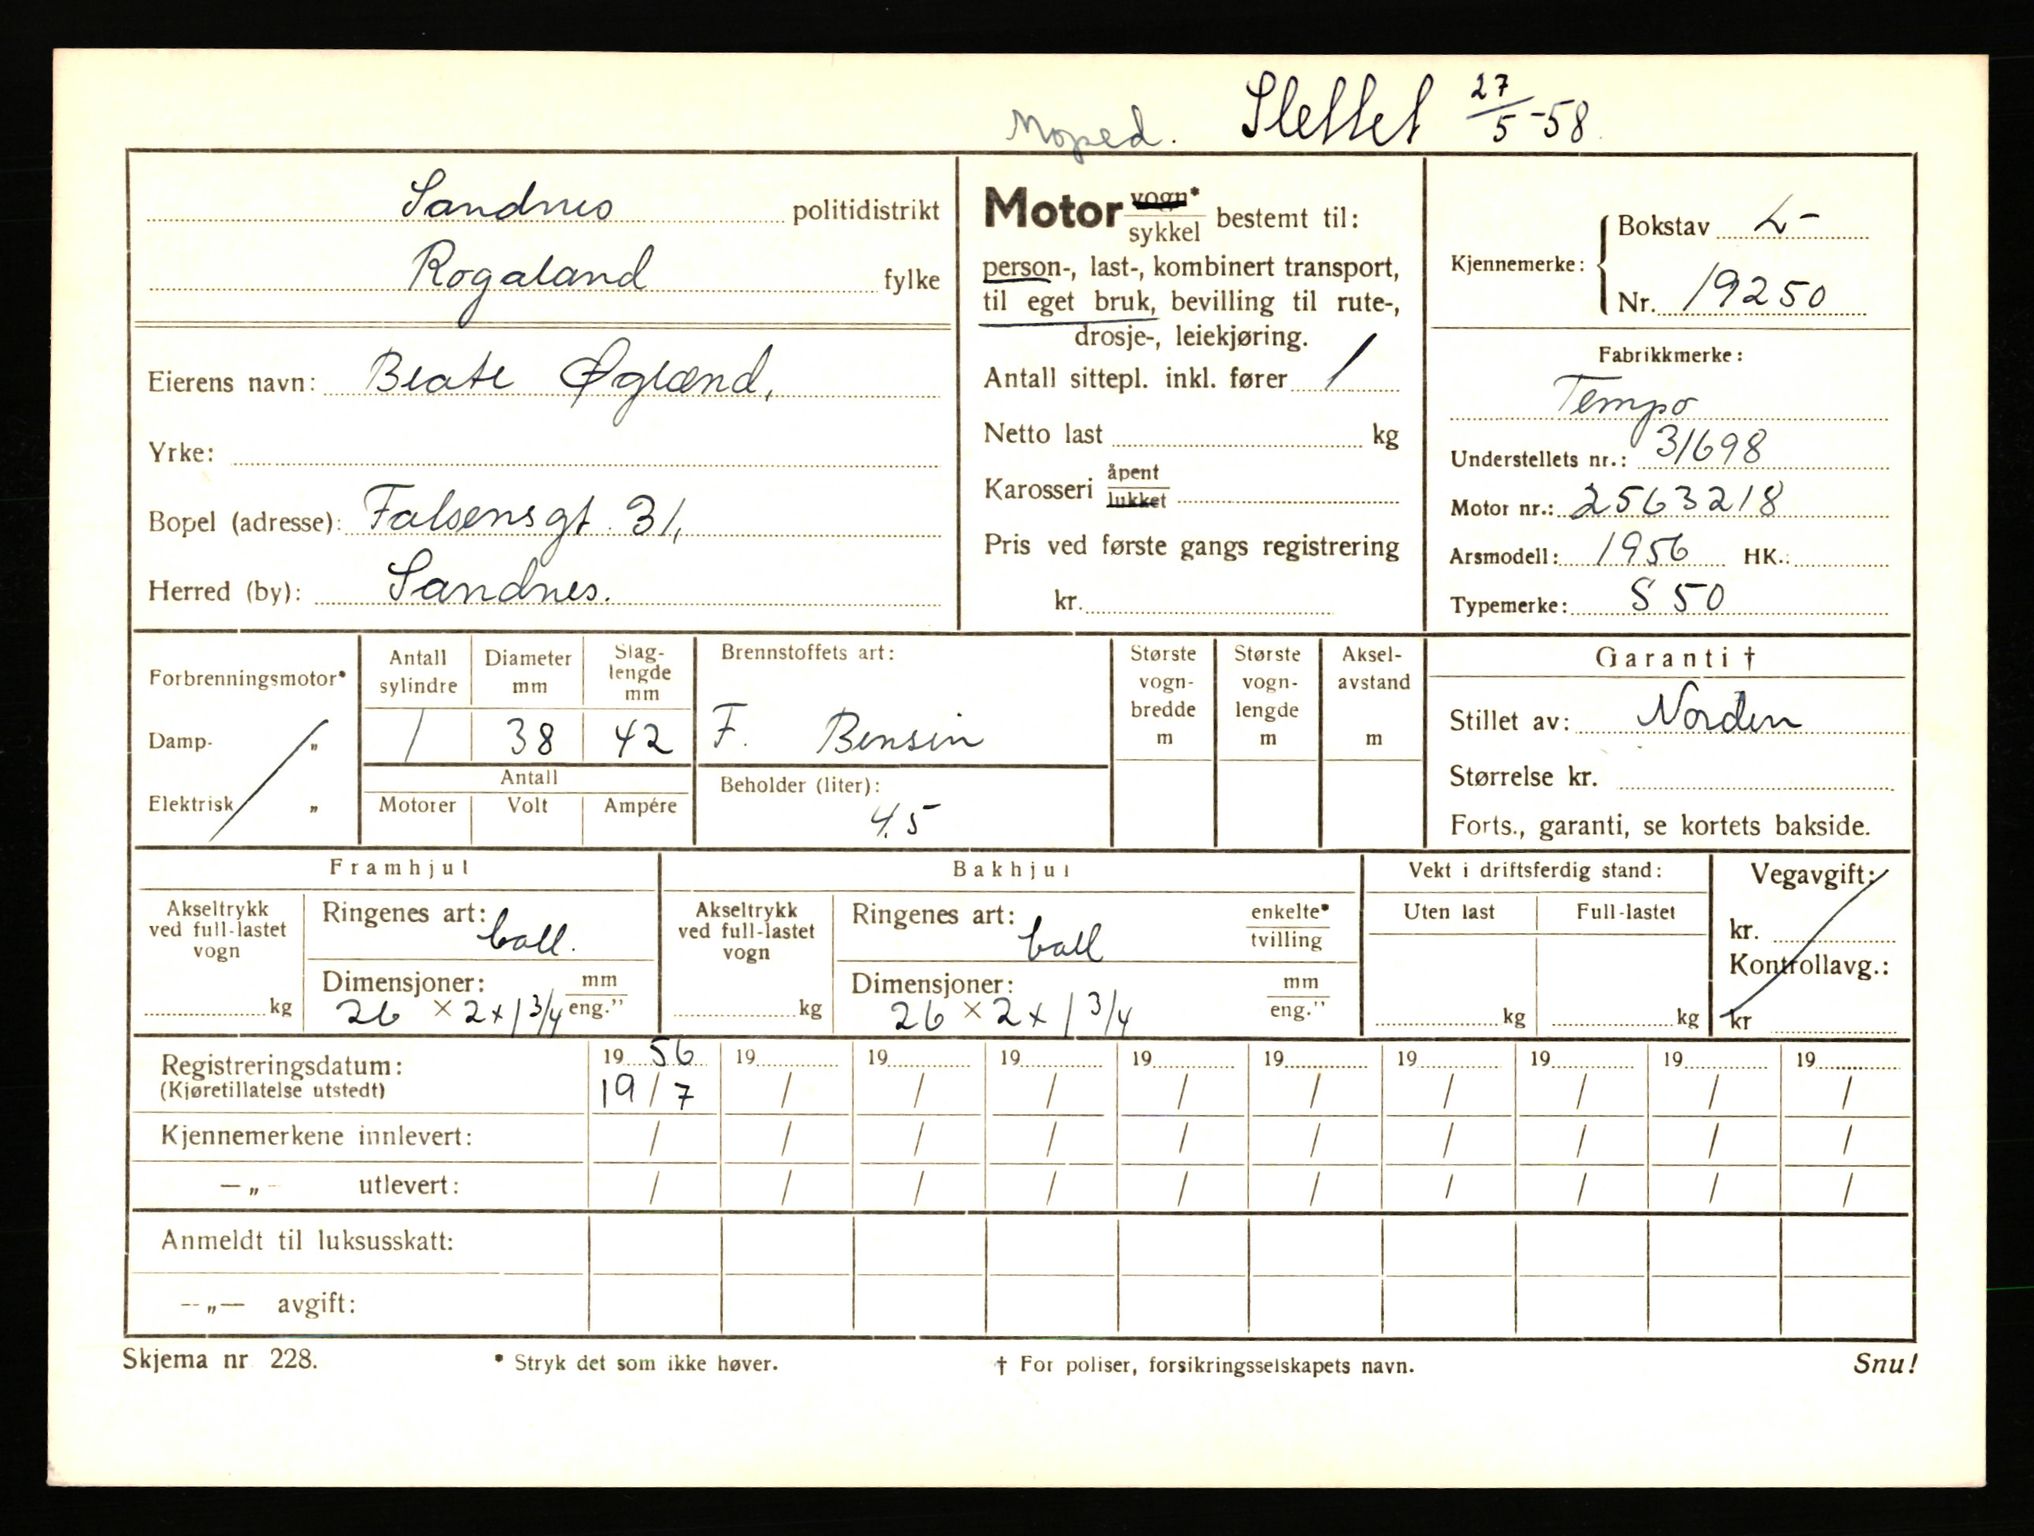 Moped. Slettet 27/5-58
Sandnes politidistrikt
Rogaland fylke
Eierens navn: Beate Øglænd,
Yrke:
Bopel (adresse): Falsensgt. 31,
Herred (by): Sandnes.
Motor vogn* / sykkel bestemt til:
person-, last-, kombinert transport,
til eget bruk, bevilling til rute-,
drosje-, leiekjøring.
Antall sittepl. inkl. fører 1
Netto last kg
Karosseri åpent / lukket
Pris ved første gangs registrering
kr.
Kjennemerke: Bokstav L-
Nr. 19250
Fabrikkmerke:
Tempo
Understellets nr.: 31698
Motor nr.: 2563218
Arsmodell: 1956 HK.:
Typemerke: S 50
Forbrenningsmotor*
Damp- „
Elektrisk „
Antall sylindre
1
Diameter mm
38
Slag-lengde mm
42
Antall
Motorer Volt Ampére
Brennstoffets art:
F. Bensin
Beholder (liter):
4.5
Største vogn-bredde m
Største vogn-lengde m
Aksel-avstand m
Garanti †
Stillet av: Norden
Størrelse kr.
Forts., garanti, se kortets bakside.
Framhjul
Akseltrykk ved full-lastet vogn
kg
Ringenes art: ball.
Dimensjoner: mm / eng."
26 × 2 x 1 3/4
Bakhjul
Akseltrykk ved full-lastet vogn
kg
Ringenes art: ball enkelte* / tvilling
Dimensjoner: mm / eng."
26 × 2 x 1 3/4
Vekt i driftsferdig stand:
Uten last Full-lastet
kg kg
Vegavgift:
kr.
Kontrollavg.:
kr
Registreringsdatum: 19 56 19 19 19 19 19 19 19 19 19
(Kjøretillatelse utstedt) 19/7 / / / / / / / / /
Kjennemerkene innlevert: / / / / / / / / / /
— „ - utlevert: / / / / / / / / / /
Anmeldt til luksusskatt:
-- „ — avgift:
Skjema nr 228. * Stryk det som ikke høver. † For poliser, forsikringsselskapets navn. Snu!